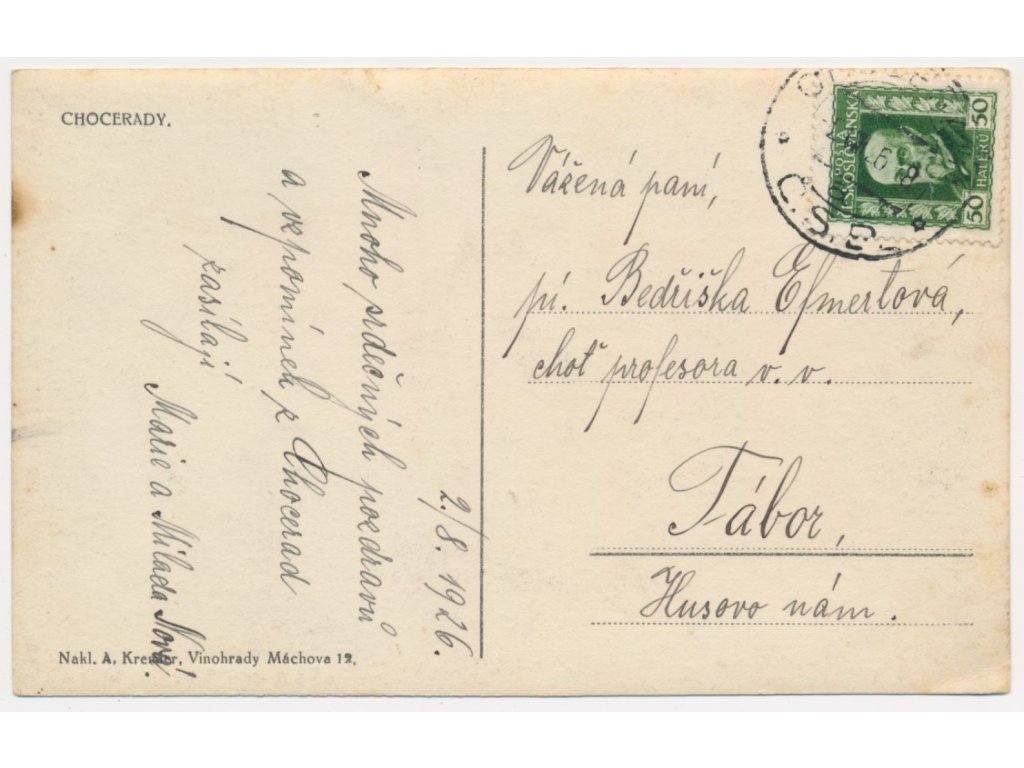 CHOCERADY.
2./8. 1926.
Mnoho srdečných pozdravů
a vzpomínek z Chocerad
zasílají
Marie a Milada Nová.
Nakl. A. Kremer, Vinohrady Máchova 12.
POŠTA
ČESKOSLOVENSKÁ
50 HALÉŘŮ 50
Č.S.P.
Vážená paní,
pí. Bedřiška Efmertová,
choť profesora v. v.
Tábor,
Husovo nám.